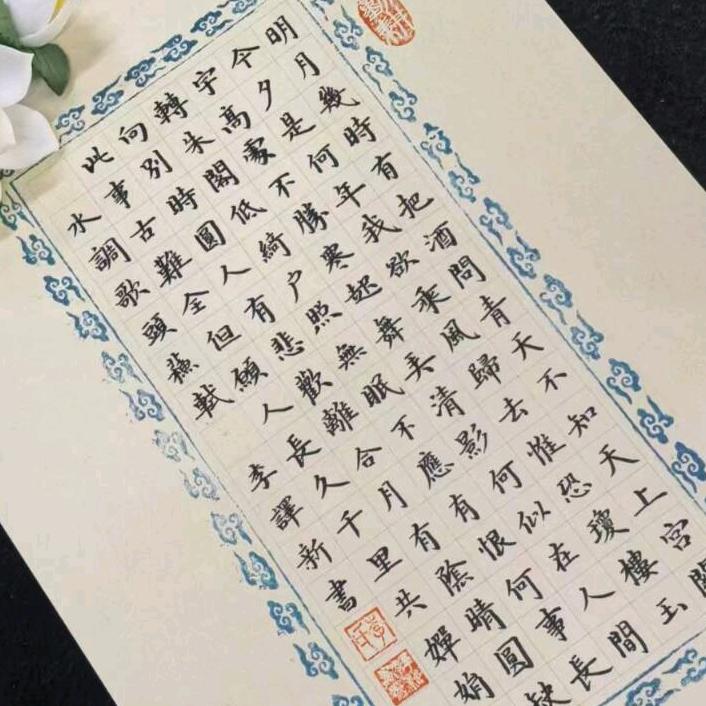 明月幾時有把酒問青天不知天上宮闕
今夕是何年我欲乘風歸去惟恐瓊樓玉
宇高處不勝寒起舞弄清影何似在人間
轉朱閣低綺户照無眠不應有恨何事長
向別時圓人有悲歡離合月有陰晴圓缺
此事古難全但願人長久千里共嬋娟
水調歌頭蘇軾 李譯新書